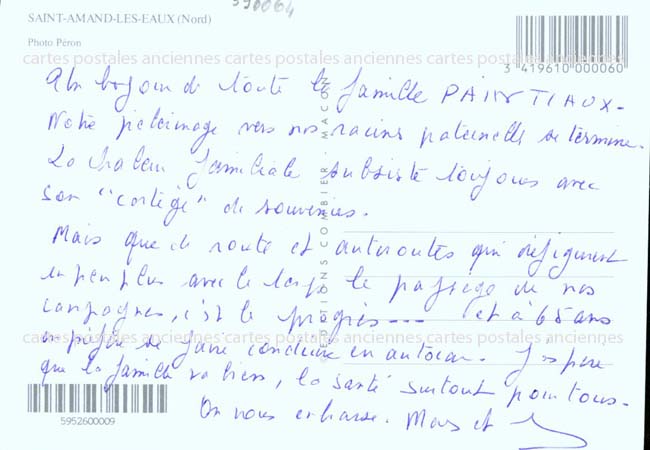 590064
SAINT-AMAND-LES-EAUX (Nord)
Photo Péron
3 419610 000060
cartes postales anciennes cartes postales anciennes cartes postales anciennes
bonjour de toute la famille PAINTIAUX-
Notre pèlerinage vers nos racines paternelle se termine.
La chaleur familiale subsiste toujours avec
son "cortège" de souvenirs.
Mais que de route et autoroutes qui défigurent
un peu plus avec le temps le paysage de nos
campagnes, c'est le progrès --- et à 65 ans
on préfère se faire conduire en autocar. J'espère
cartes postales anciennes cartes postales anciennes cartes postales anciennes
que la famille va bien, la santé surtout pour tous.
On vous embrasse. Mars et
EDITIONS COMBIER MACON
5952600009